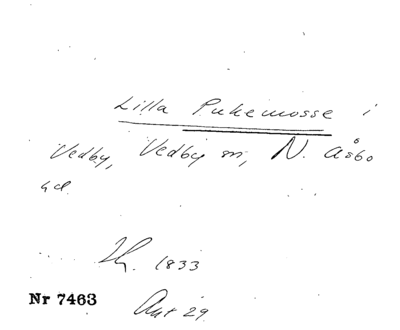 Lilla Pukemosse i
Vedby, Vedby sn, N. Åsbo
hd.
1833
Nr 7463
Akt 29